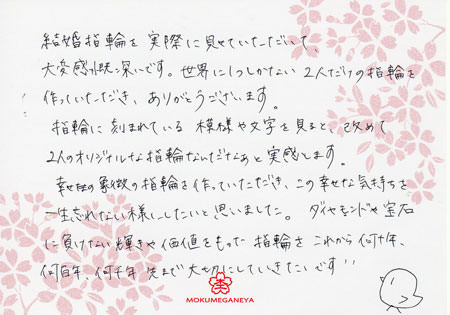 結婚指輪を実際に見せていただいて、
大変感慨深いです。世界に1つしかない2人だけの指輪を
作っていただき、ありがとうございます。
指輪に刻まれている模様や文字を見ると、改めて
2人のオリジナルな指輪なんだなあと実感します。
幸せの象徴の指輪を作っていただき、この幸せな気持ちを
一生忘れない様にしたいと思いました。ダイヤモンドや宝石
に負けない輝きや価値をもつ指輪をこれから何十年、
何百年、何千年先まで大切にしていきたいです!!
MOKUMEGANEYA